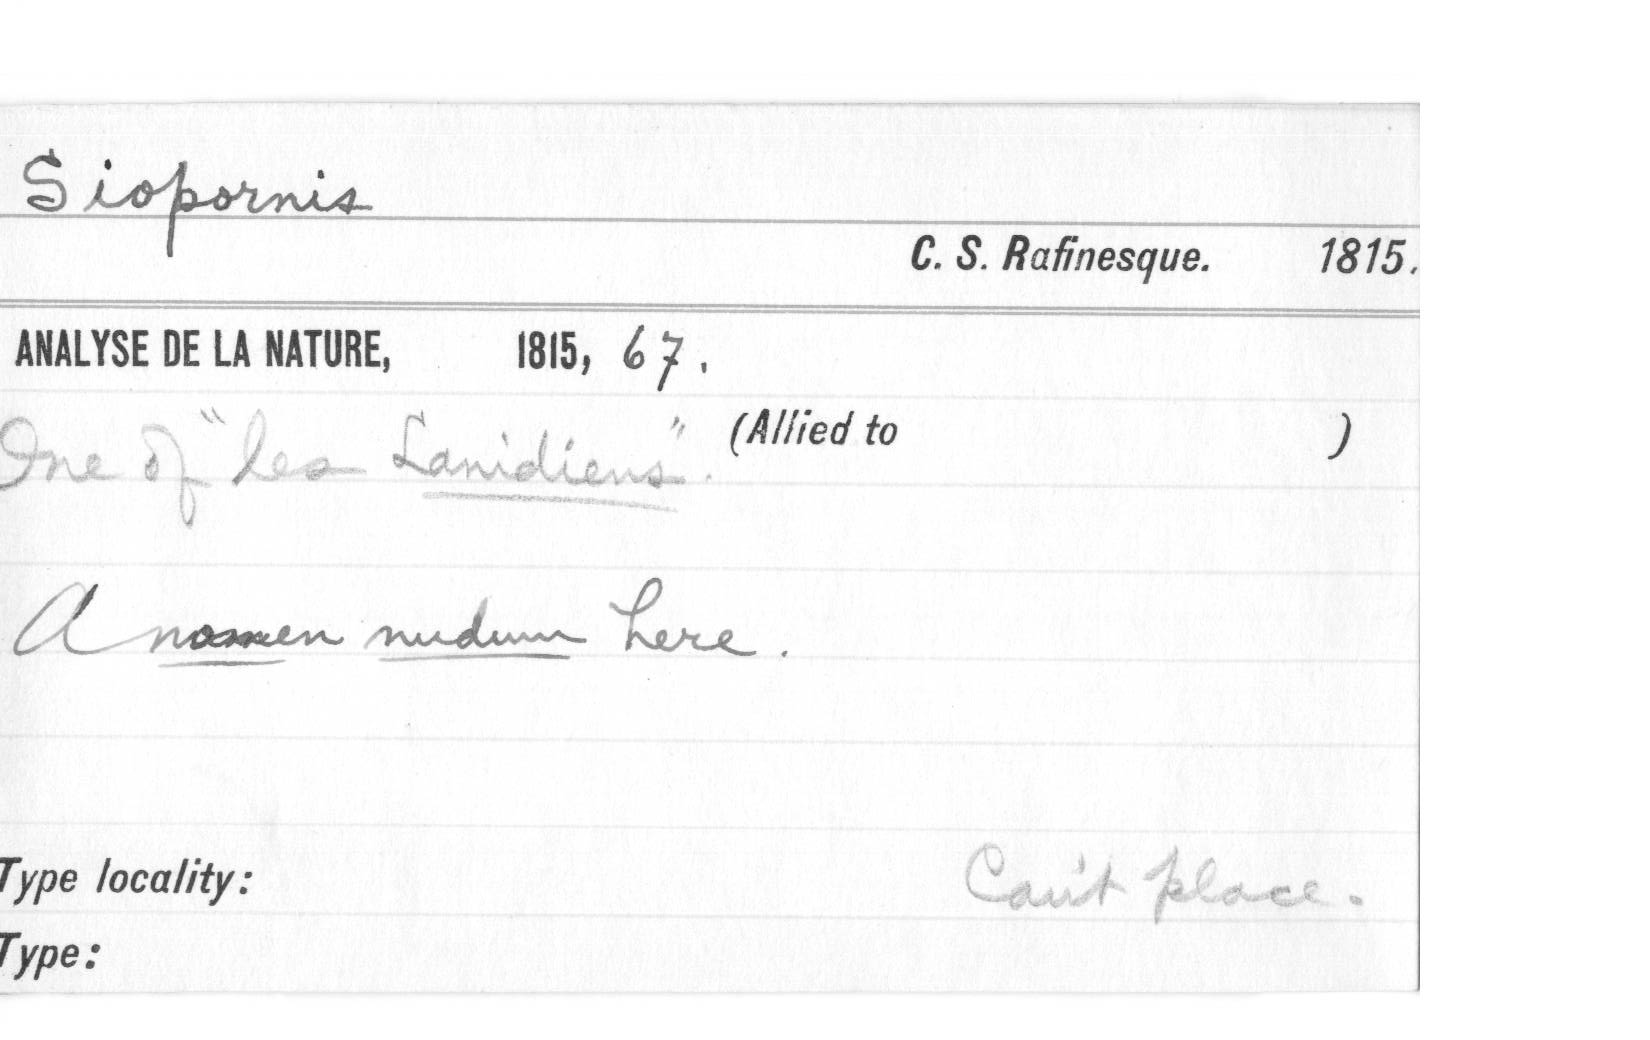 Siopornis
C. S. Rafinesque. 1815.
ANALYSE DE LA NATURE, 1815, 67.
One of "les Lanidiens". (Allied to )
A nomen nudum here.
Type locality: Can't place.
Type: